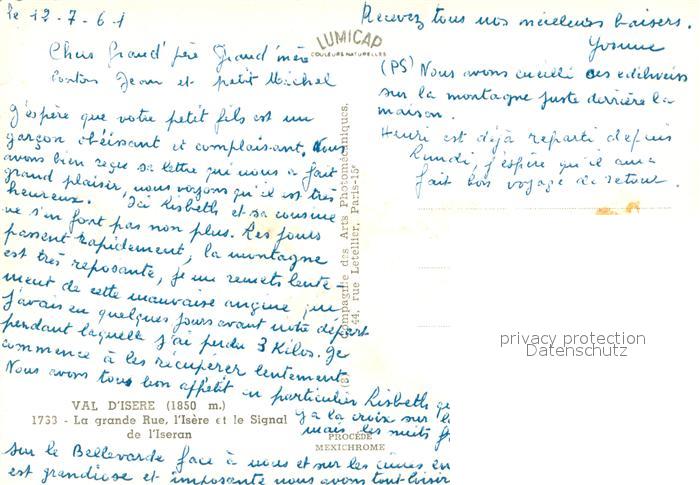 le 12-7-61
Chers Grand'père Grand'mère
tonton Jean et petit Michel
J'espère que votre petit fils est un
garçon obéissant et complaisant. Nous
avons bien reçu sa lettre qui nous a fait
grand plaisir, nous voyons qu'il est très
heureux. Ici Lisbeth et sa cousine
ne s'en font pas non plus. Les jours
passent rapidement, la montagne
est très reposante, je me remets lente-
ment de cette mauvaise angine que
j'avais eu quelques jours avant notre départ
pendant laquelle j'ai perdu 3 Kilos. Je
commence à les récupérer lentement.
Nous avons tous bon appétit en particulier Lisbeth
VAL D'ISERE (1850 m.)
1733 - La grande Rue, l'Isère et le Signal
de l'Iseran
y a la croix sur
mais les nuits
sur le Bellevarde face à nous et sur les cimes en
est grandiose et imposante nous avons tout loisir
LUMICAP
COULEURS NATURELLES
Compagnie des Arts Photomécaniques.
44, rue Letellier, Paris-15e
PROCÉDÉ
MEXICHROME
Recevez tous nos meilleurs baisers.
Yvonne
(PS) Nous avons cueilli des edilweiss
sur la montagne juste derrière la
maison.
Henri est déjà reparti depuis
Lundi, j'espère qu'il aura
fait bon voyage de retour.
privacy protection
Datenschutz